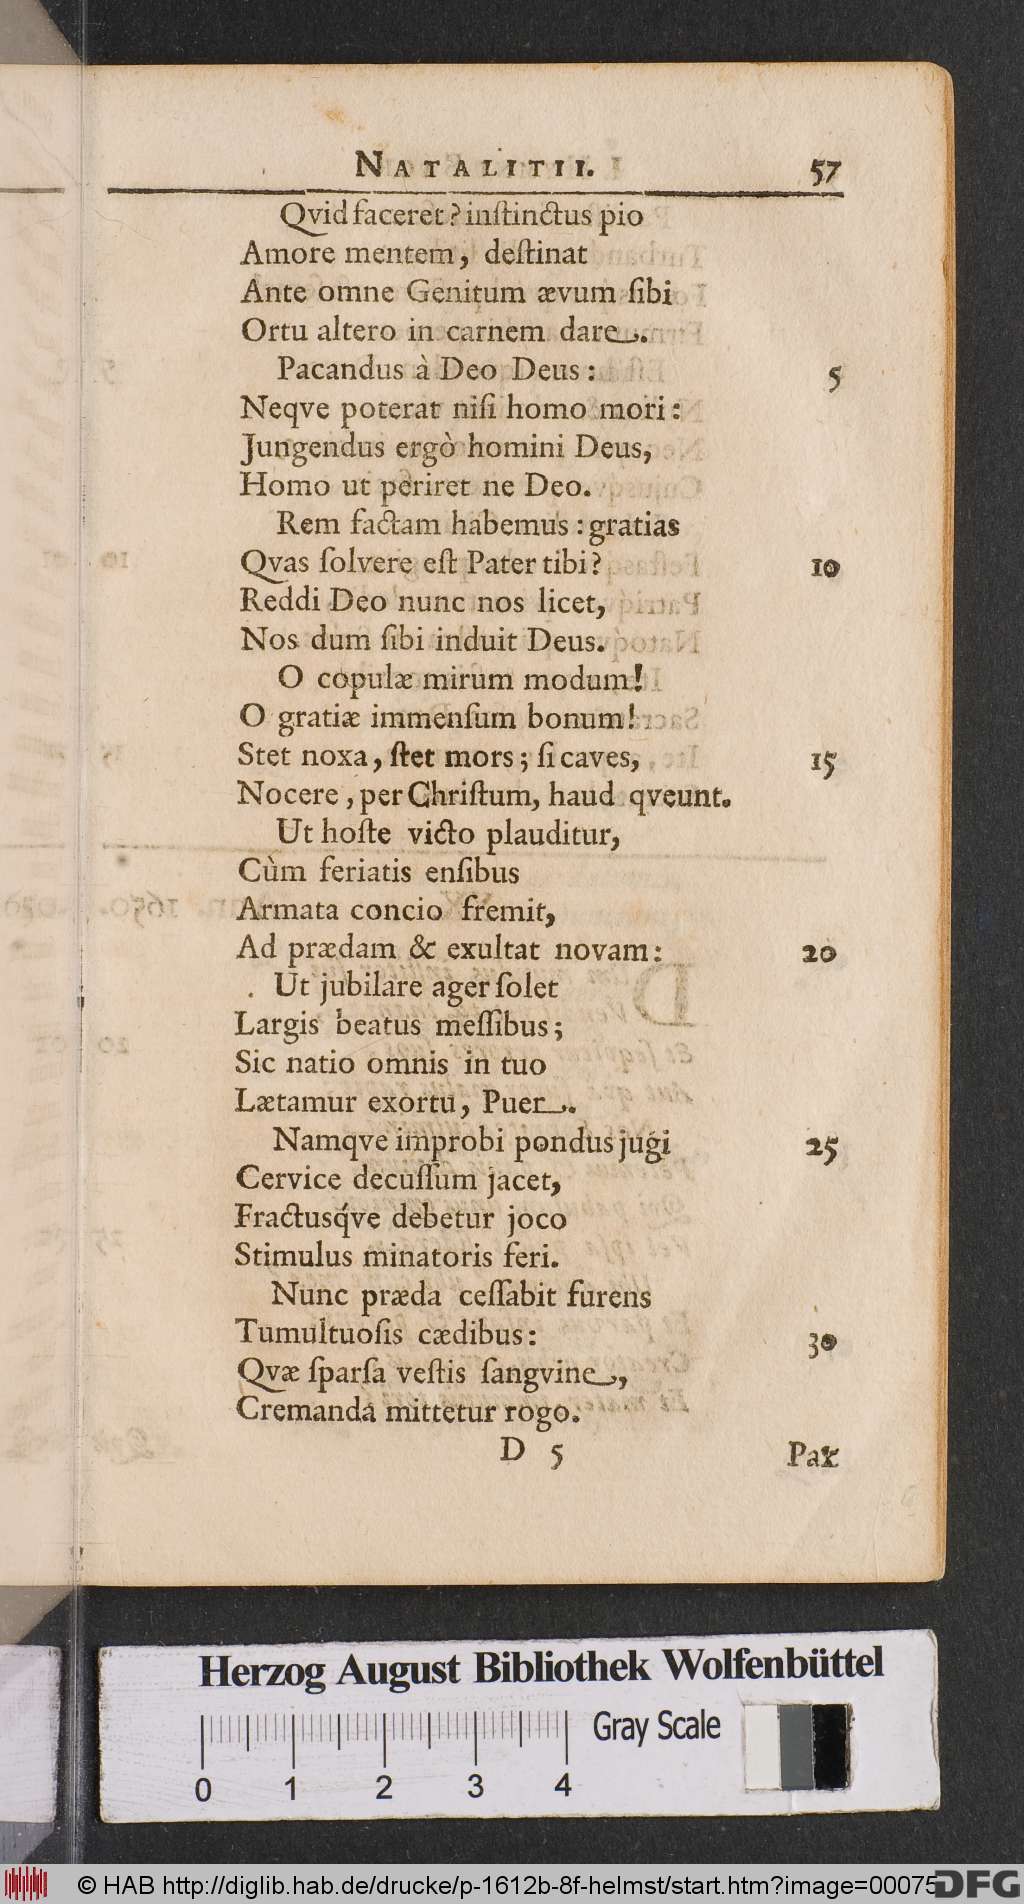 NATALITII. 57
Qvid faceret? inſtinctus pio
Amore mentem, deſtinat
Ante omne Genitum ævum ſibi
Ortu altero in carnem dare.
Pacandus à Deo Deus: 5
Neqve poterat niſi homo mori:
Jungendus ergò homini Deus,
Homo ut periret ne Deo.
Rem factam habemus: gratias
Qvas ſolvere eſt Pater tibi? 10
Reddi Deo nunc nos licet,
Nos dum ſibi induit Deus.
O copulæ mirum modum!
O gratiæ immenſum bonum!
Stet noxa, ſtet mors; ſi caves, 15
Nocere, per Chriſtum, haud qveunt.
Ut hoſte victo plauditur,
Cùm feriatis enſibus
Armata concio fremit,
Ad prædam & exultat novam: 20
Ut jubilare ager ſolet
Largis beatus meſſibus;
Sic natio omnis in tuo
Lætamur exortu, Puer.
Namqve improbi pondus jugi 25
Cervice decuſſum jacet,
Fractusq́ve debetur joco
Stimulus minatoris feri.
Nunc præda ceſſabit furens
Tumultuoſis cædibus: 30
Qvæ ſparſa veſtis ſangvine,
Cremanda mittetur rogo.
D 5 Pax
Herzog August Bibliothek Wolfenbüttel
Gray Scale
0 1 2 3 4
© HAB http://diglib.hab.de/drucke/p-1612b-8f-helmst/start.htm?image=00075
DFG